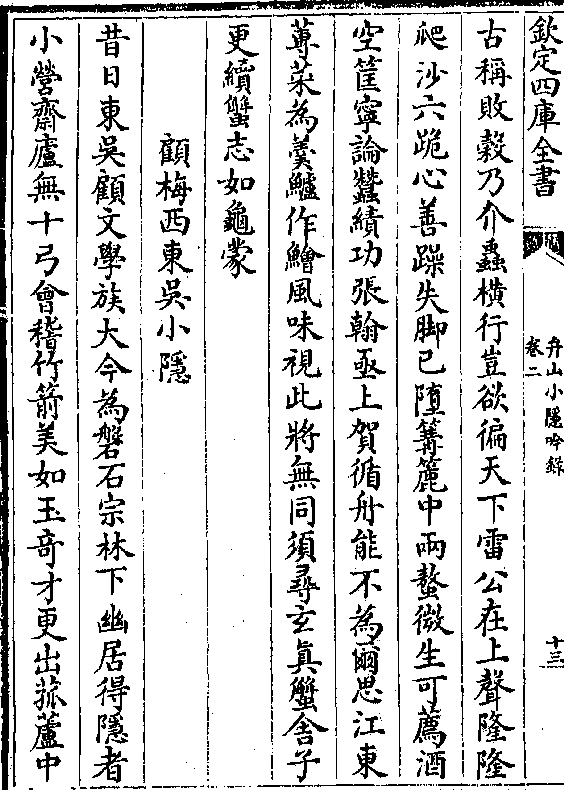 欽定四庫全書
弁山小隱吟録
卷二
十三
古稱敗穀乃介蟲橫行豈欲徧天下雷公在上聲隆隆
爬沙六跪心善躁失脚已墮篝簏中兩螯微生可薦酒
空筐寧論蠶績功張翰亟上賀循舟能不為爾思江東
蓴菜為羮鱸作鱠風味視此將無同須尋玄真蟹舍子
更續蟹志如龜蒙
顧梅西東吳小隱
昔日東吳顧文學族大今為磐石宗林下幽居得隱者
小營齋廬無十弓會稽竹箭美如玉竒才更出菰蘆中